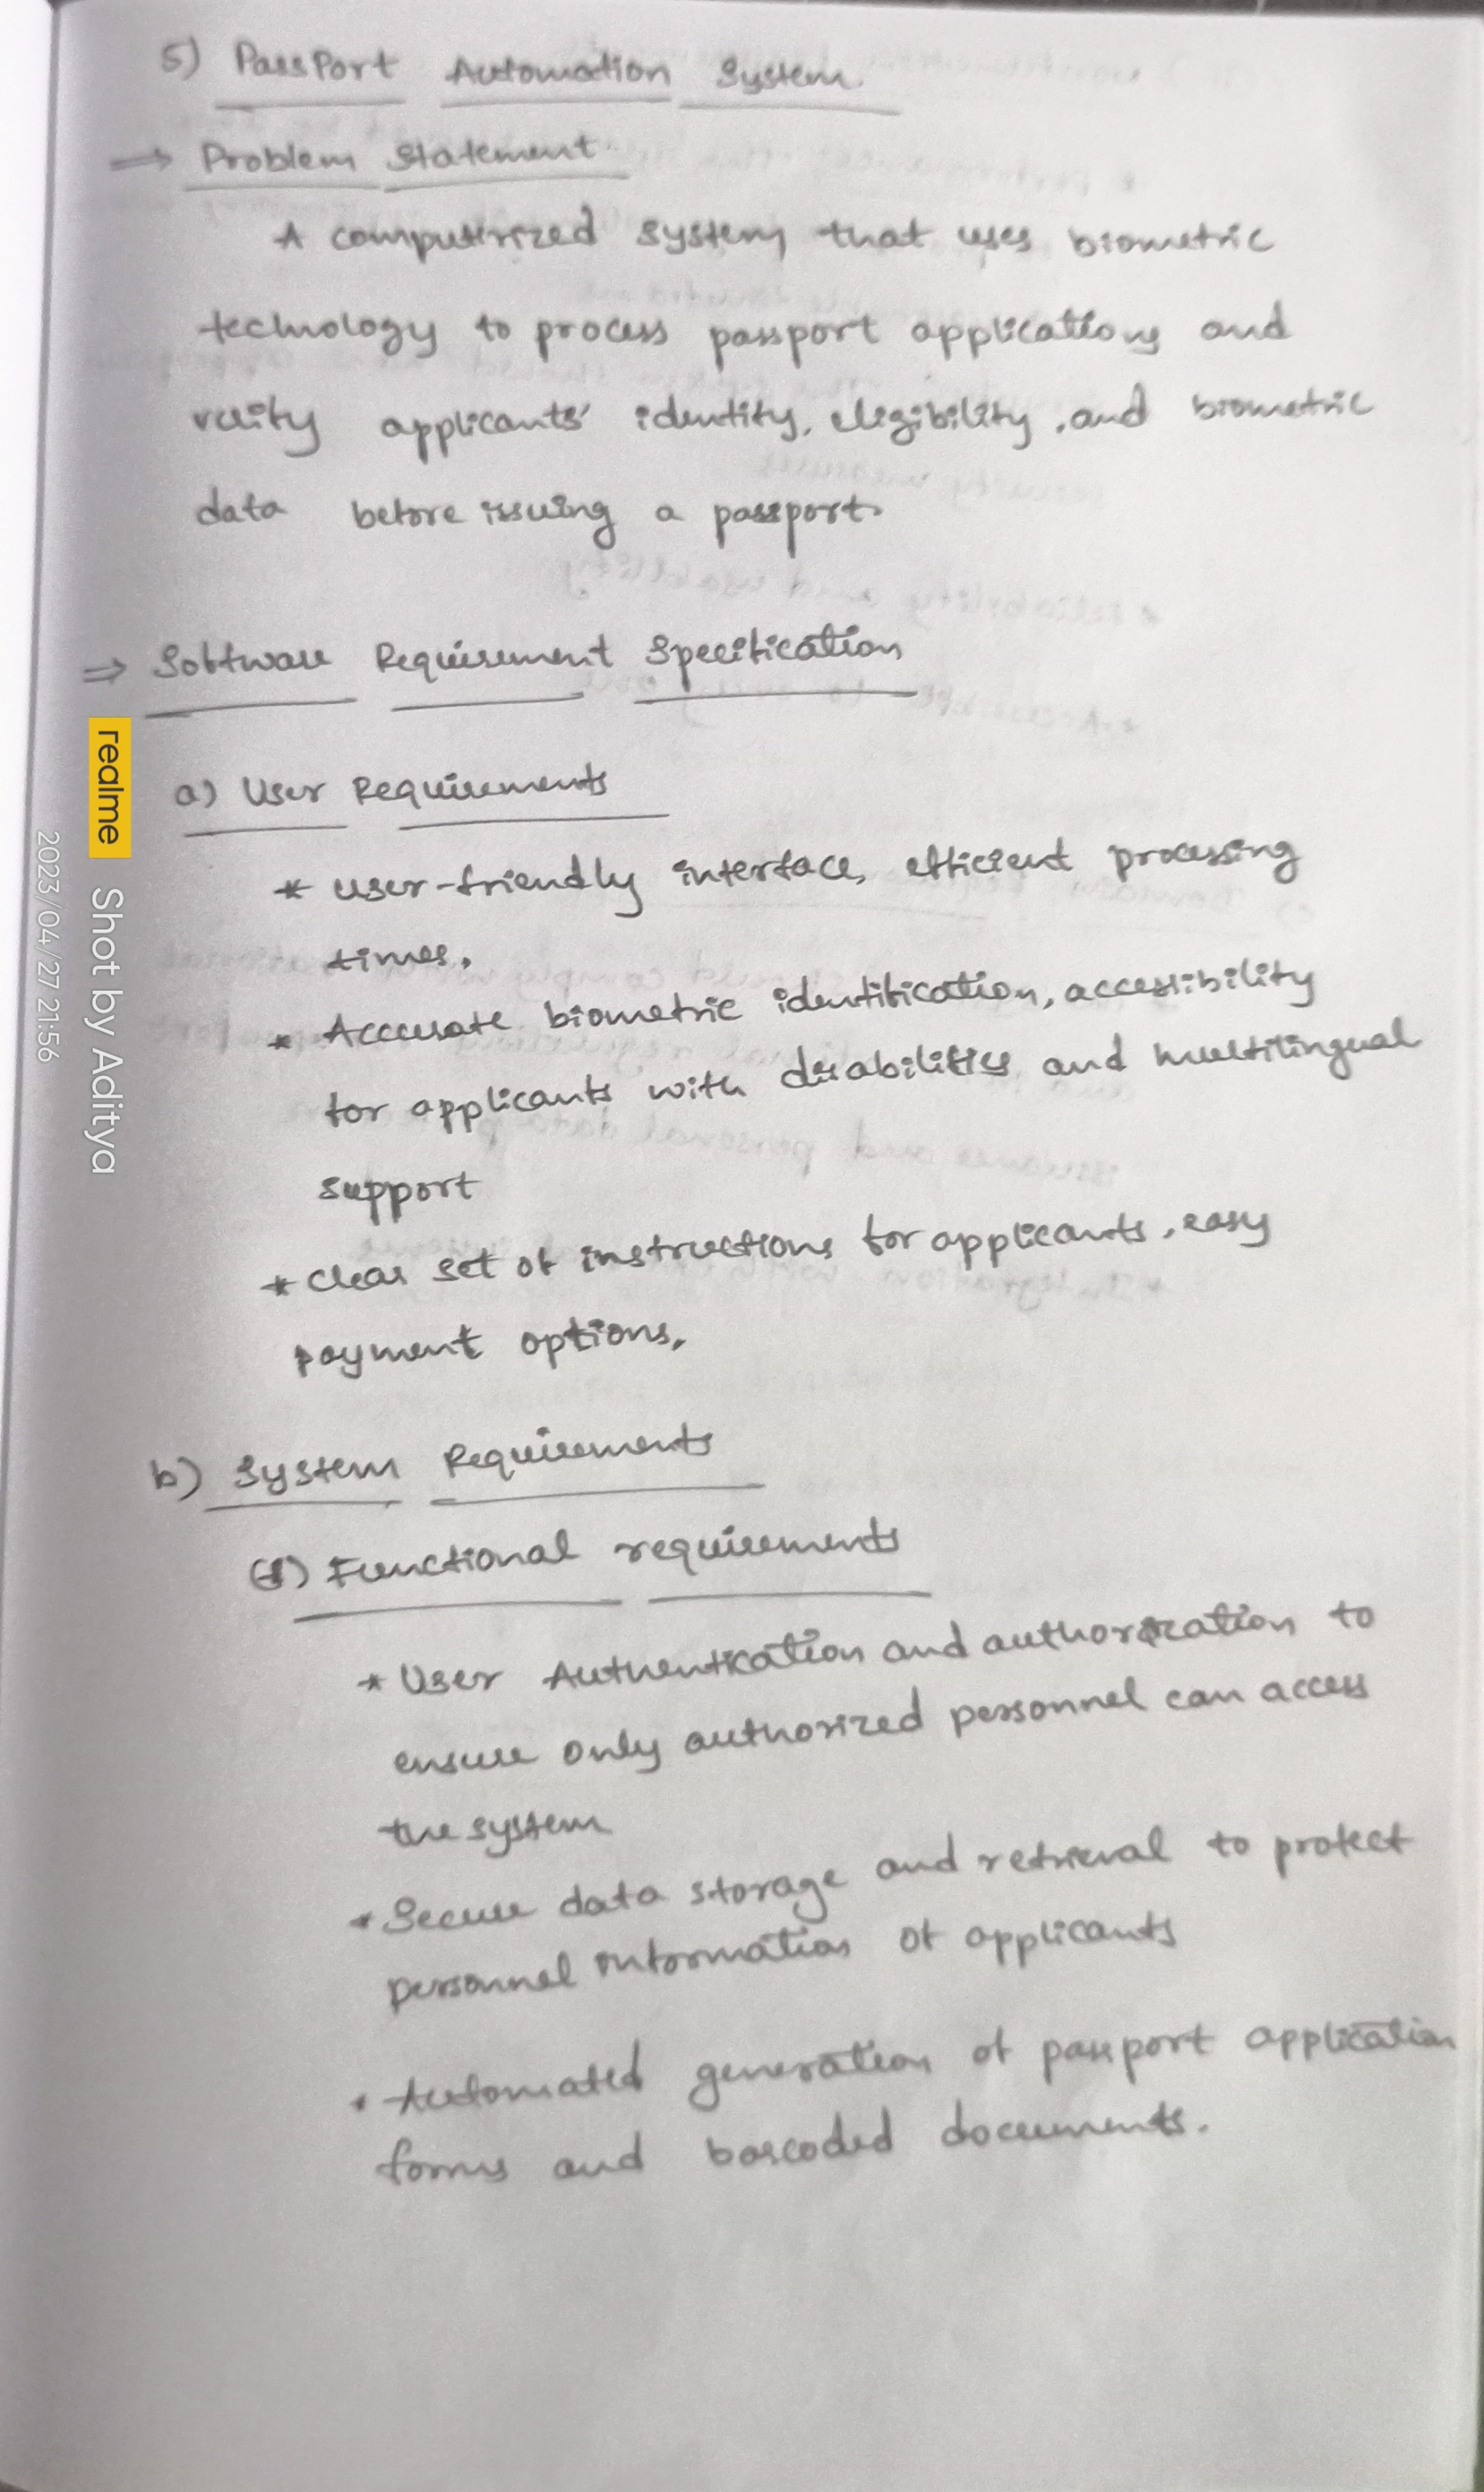 5) Passport Automation System.
⇒ Problem Statement
A computerized system that uses biometric
technology to process passport applications and
verify applicants' identity, eligibility, and biometric
data before issuing a passport.
⇒ Software Requirement Specification
a) User Requirements
* User-friendly interface, efficient processing
times.
* Accurate biometric identification, accessibility
for applicants with disabilities and multilingual
support
* Clear set of instructions for applicants, easy
payment options.
b) System Requirements
Functional requirements
* User Authentication and authorization to
ensure only authorized personnel can access
the system
* Secure data storage and retrieval to protect
personnel information of applicants
* Automated generation of passport application
forms and barcoded documents.
realme Shot by Aditya
2023/04/27 21:56